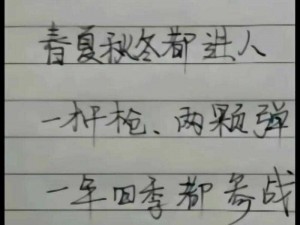 春夏秋冬都进人
一杆枪、两颗弹
一年四季都参战